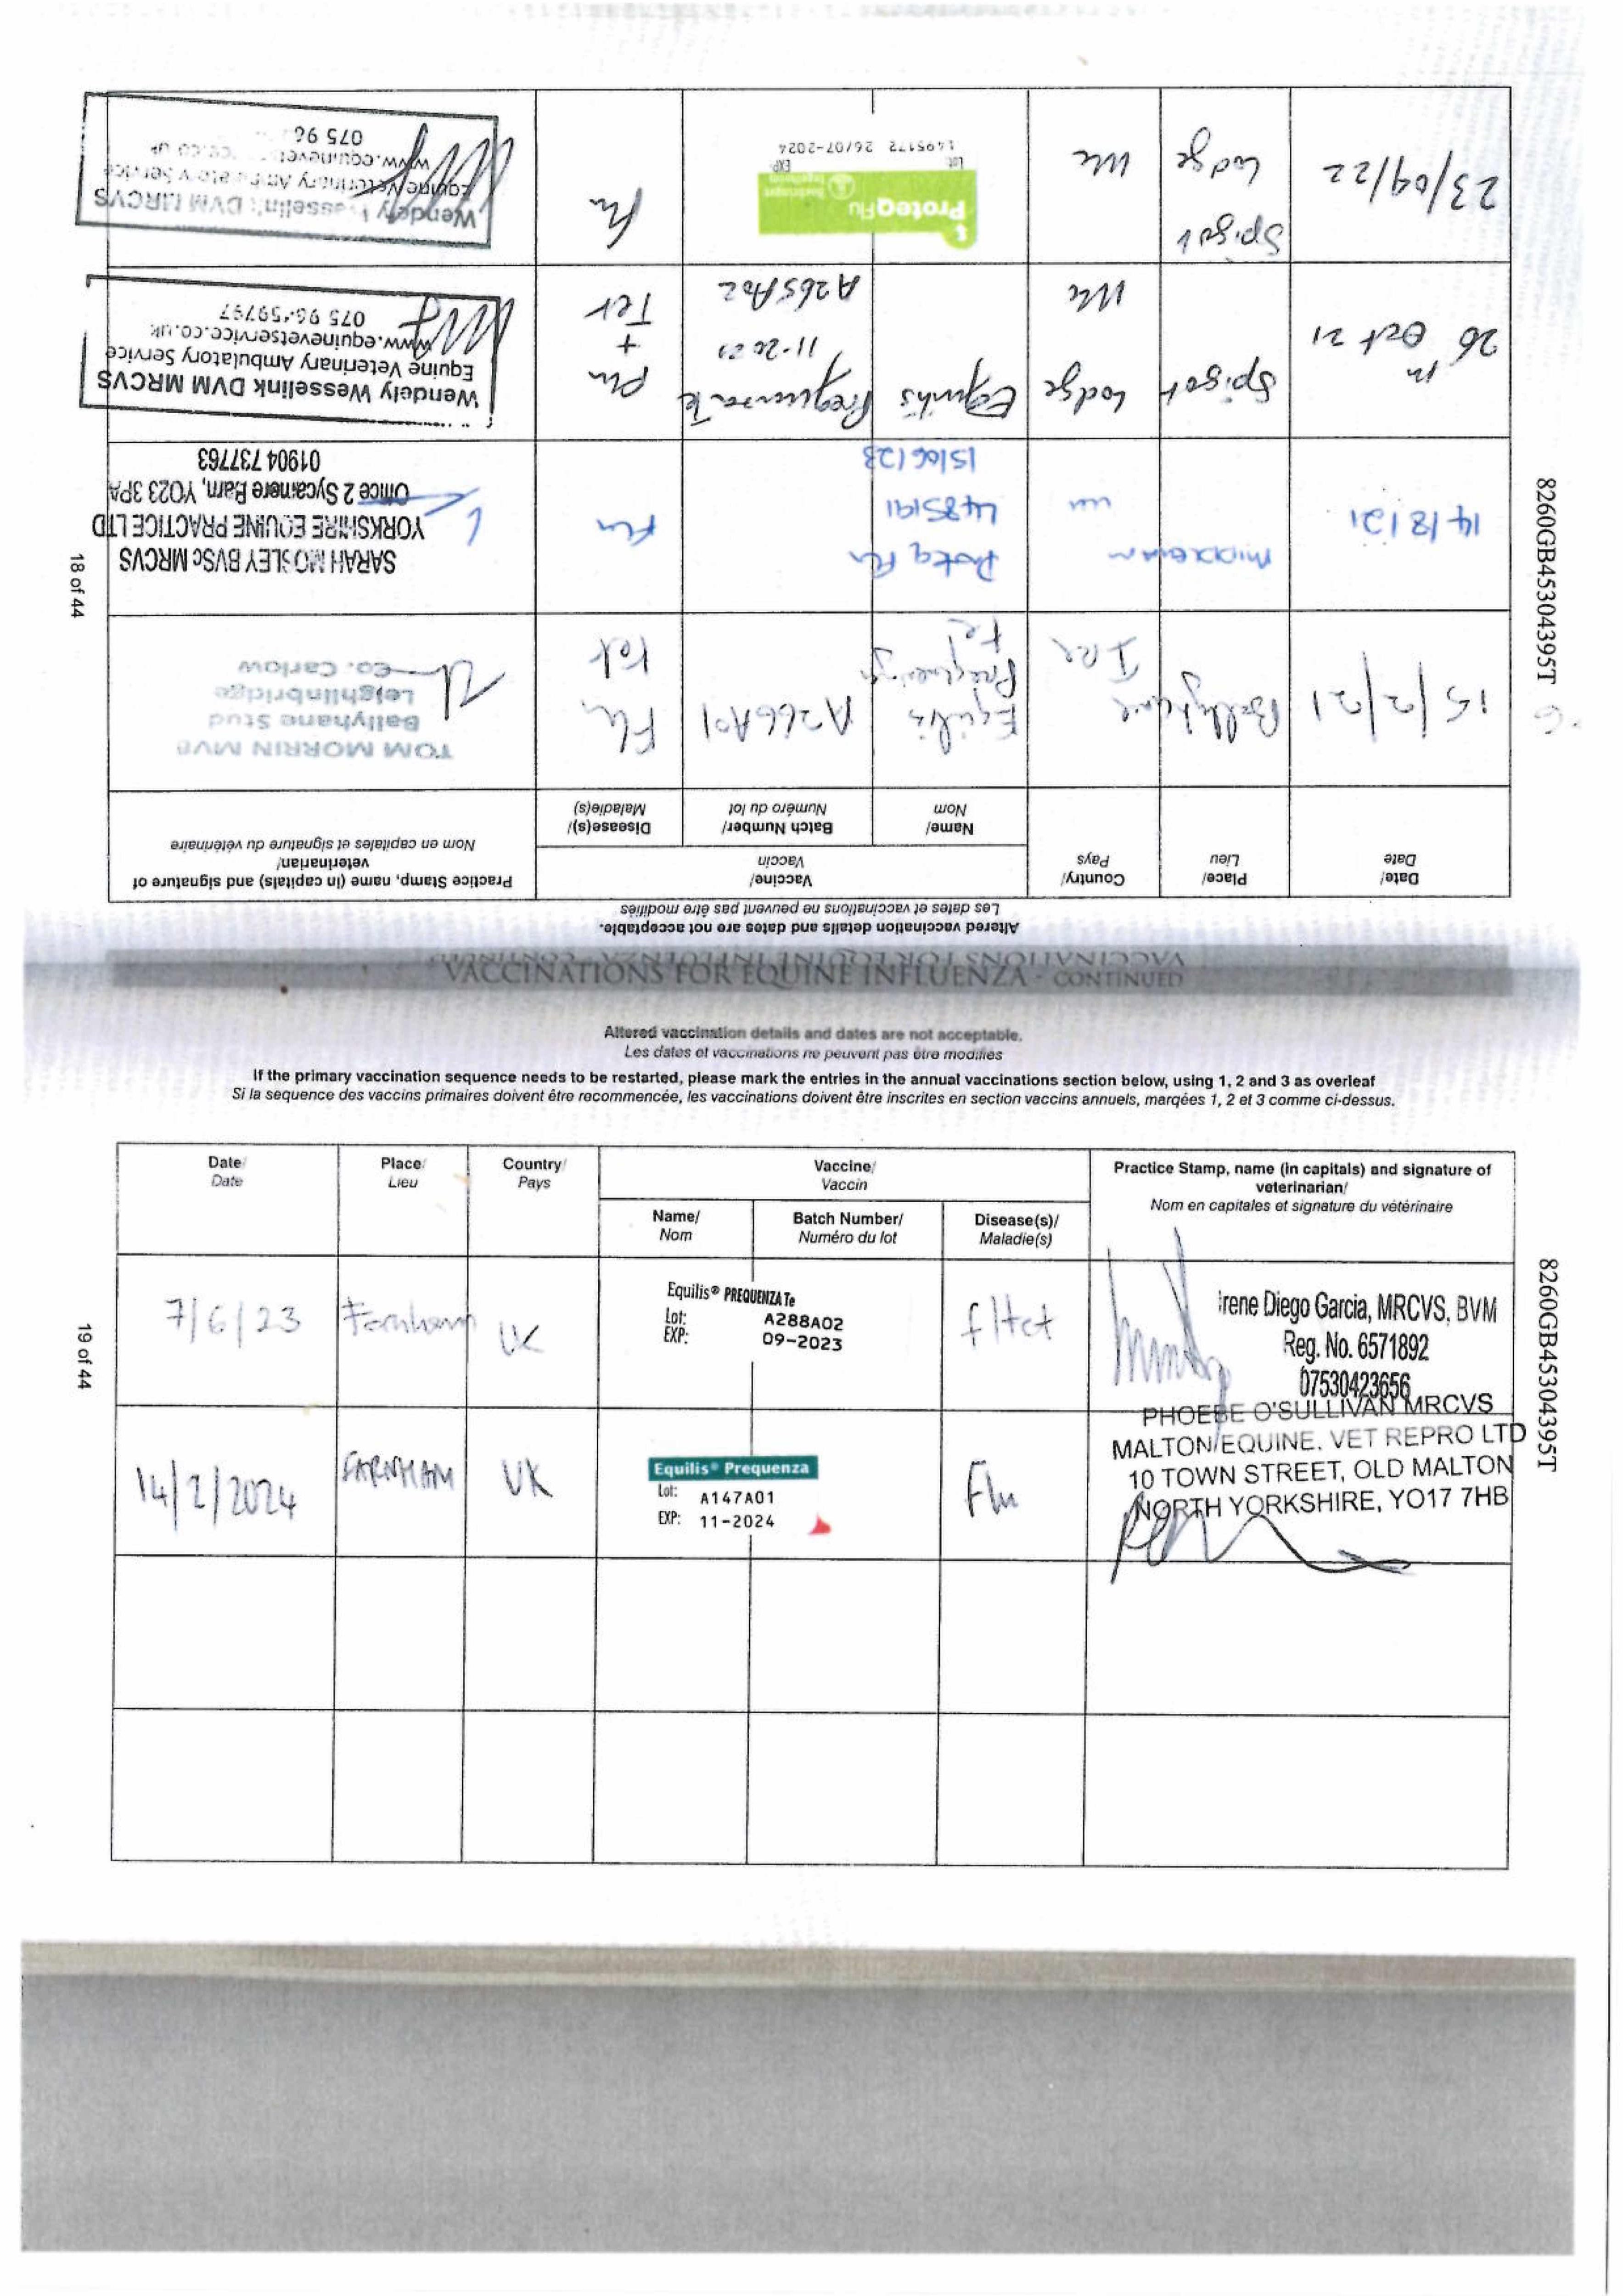 VACCINATIONS FOR EQUINE INFLUENZA - CONTINUED
Altered vaccination details and dates are not acceptable.
Les dates et vaccinations ne peuvent pas être modifiés
Date/
Date
Place/
Lieu
Country/
Pays
Vaccine/
Vaccin
Practice Stamp, name (in capitals) and signature of
veterinarian/
Nom en capitales et signature du vétérinaire
Name/
Nom
Batch Number/
Numéro du lot
Disease(s)/
Maladie(s)
15/2/21
Ballyhane
Ire
Equilis
Prequenza
Te
A266A01
Flu
Tet
TOM MORRIN MVB
Ballyhane Stud
Leighlinbridge
Co. Carlow
14/8/21
MIDDLEHAM
UK
Proteq Flu
L485191
15/06/23
Flu
SARAH MOSLEY BVSc MRCVS
YORKSHIRE EQUINE PRACTICE LTD
Office 2 Sycamore Barn, YO23 3PA
01904 737763
26 Oct 21
Spigot
Lodge
UK
Equilis
Prequenza te
11-2021
A265A02
Flu
+
Tet
Wendely Wesselink DVM MRCVS
Equine Veterinary Ambulatory Service
www.equinevetservice.co.uk
075 96 59797
23/09/22
Spigot
Lodge
UK
ProteqFlu
Boehringer
Ingelheim
Lot: EXP:
L495172 26/07-2024
Flu
Wendely Wesselink DVM MRCVS
Equine Veterinary Ambulatory Service
075 96
18 of 44
8260GB45304395T
VACCINATIONS FOR EQUINE INFLUENZA - CONTINUED
Altered vaccination details and dates are not acceptable.
Les dates et vaccinations ne peuvent pas être modifiés
If the primary vaccination sequence needs to be restarted, please mark the entries in the annual vaccinations section below, using 1, 2 and 3 as overleaf
Si la sequence des vaccins primaires doivent être recommencée, les vaccinations doivent être inscrites en section vaccins annuels, marqées 1, 2 et 3 comme ci-dessus.
Date/
Date
Place/
Lieu
Country/
Pays
Vaccine/
Vaccin
Practice Stamp, name (in capitals) and signature of
veterinarian/
Nom en capitales et signature du vétérinaire
Name/
Nom
Batch Number/
Numéro du lot
Disease(s)/
Maladie(s)
7/6/23
Farnham
UK
Equilis® PREQUENZA Te
Lot: A288A02
EXP: 09-2023
fltet
Irene Diego Garcia, MRCVS, BVM
Reg. No. 6571892
07530423656
14/2/2024
FARNHAM
UK
Equilis® Prequenza
Lot: A147A01
EXP: 11-2024
Flu
PHOEBE O'SULLIVAN MRCVS
MALTON EQUINE. VET REPRO LTD
10 TOWN STREET, OLD MALTON
NORTH YORKSHIRE, YO17 7HB
19 of 44
8260GB45304395T